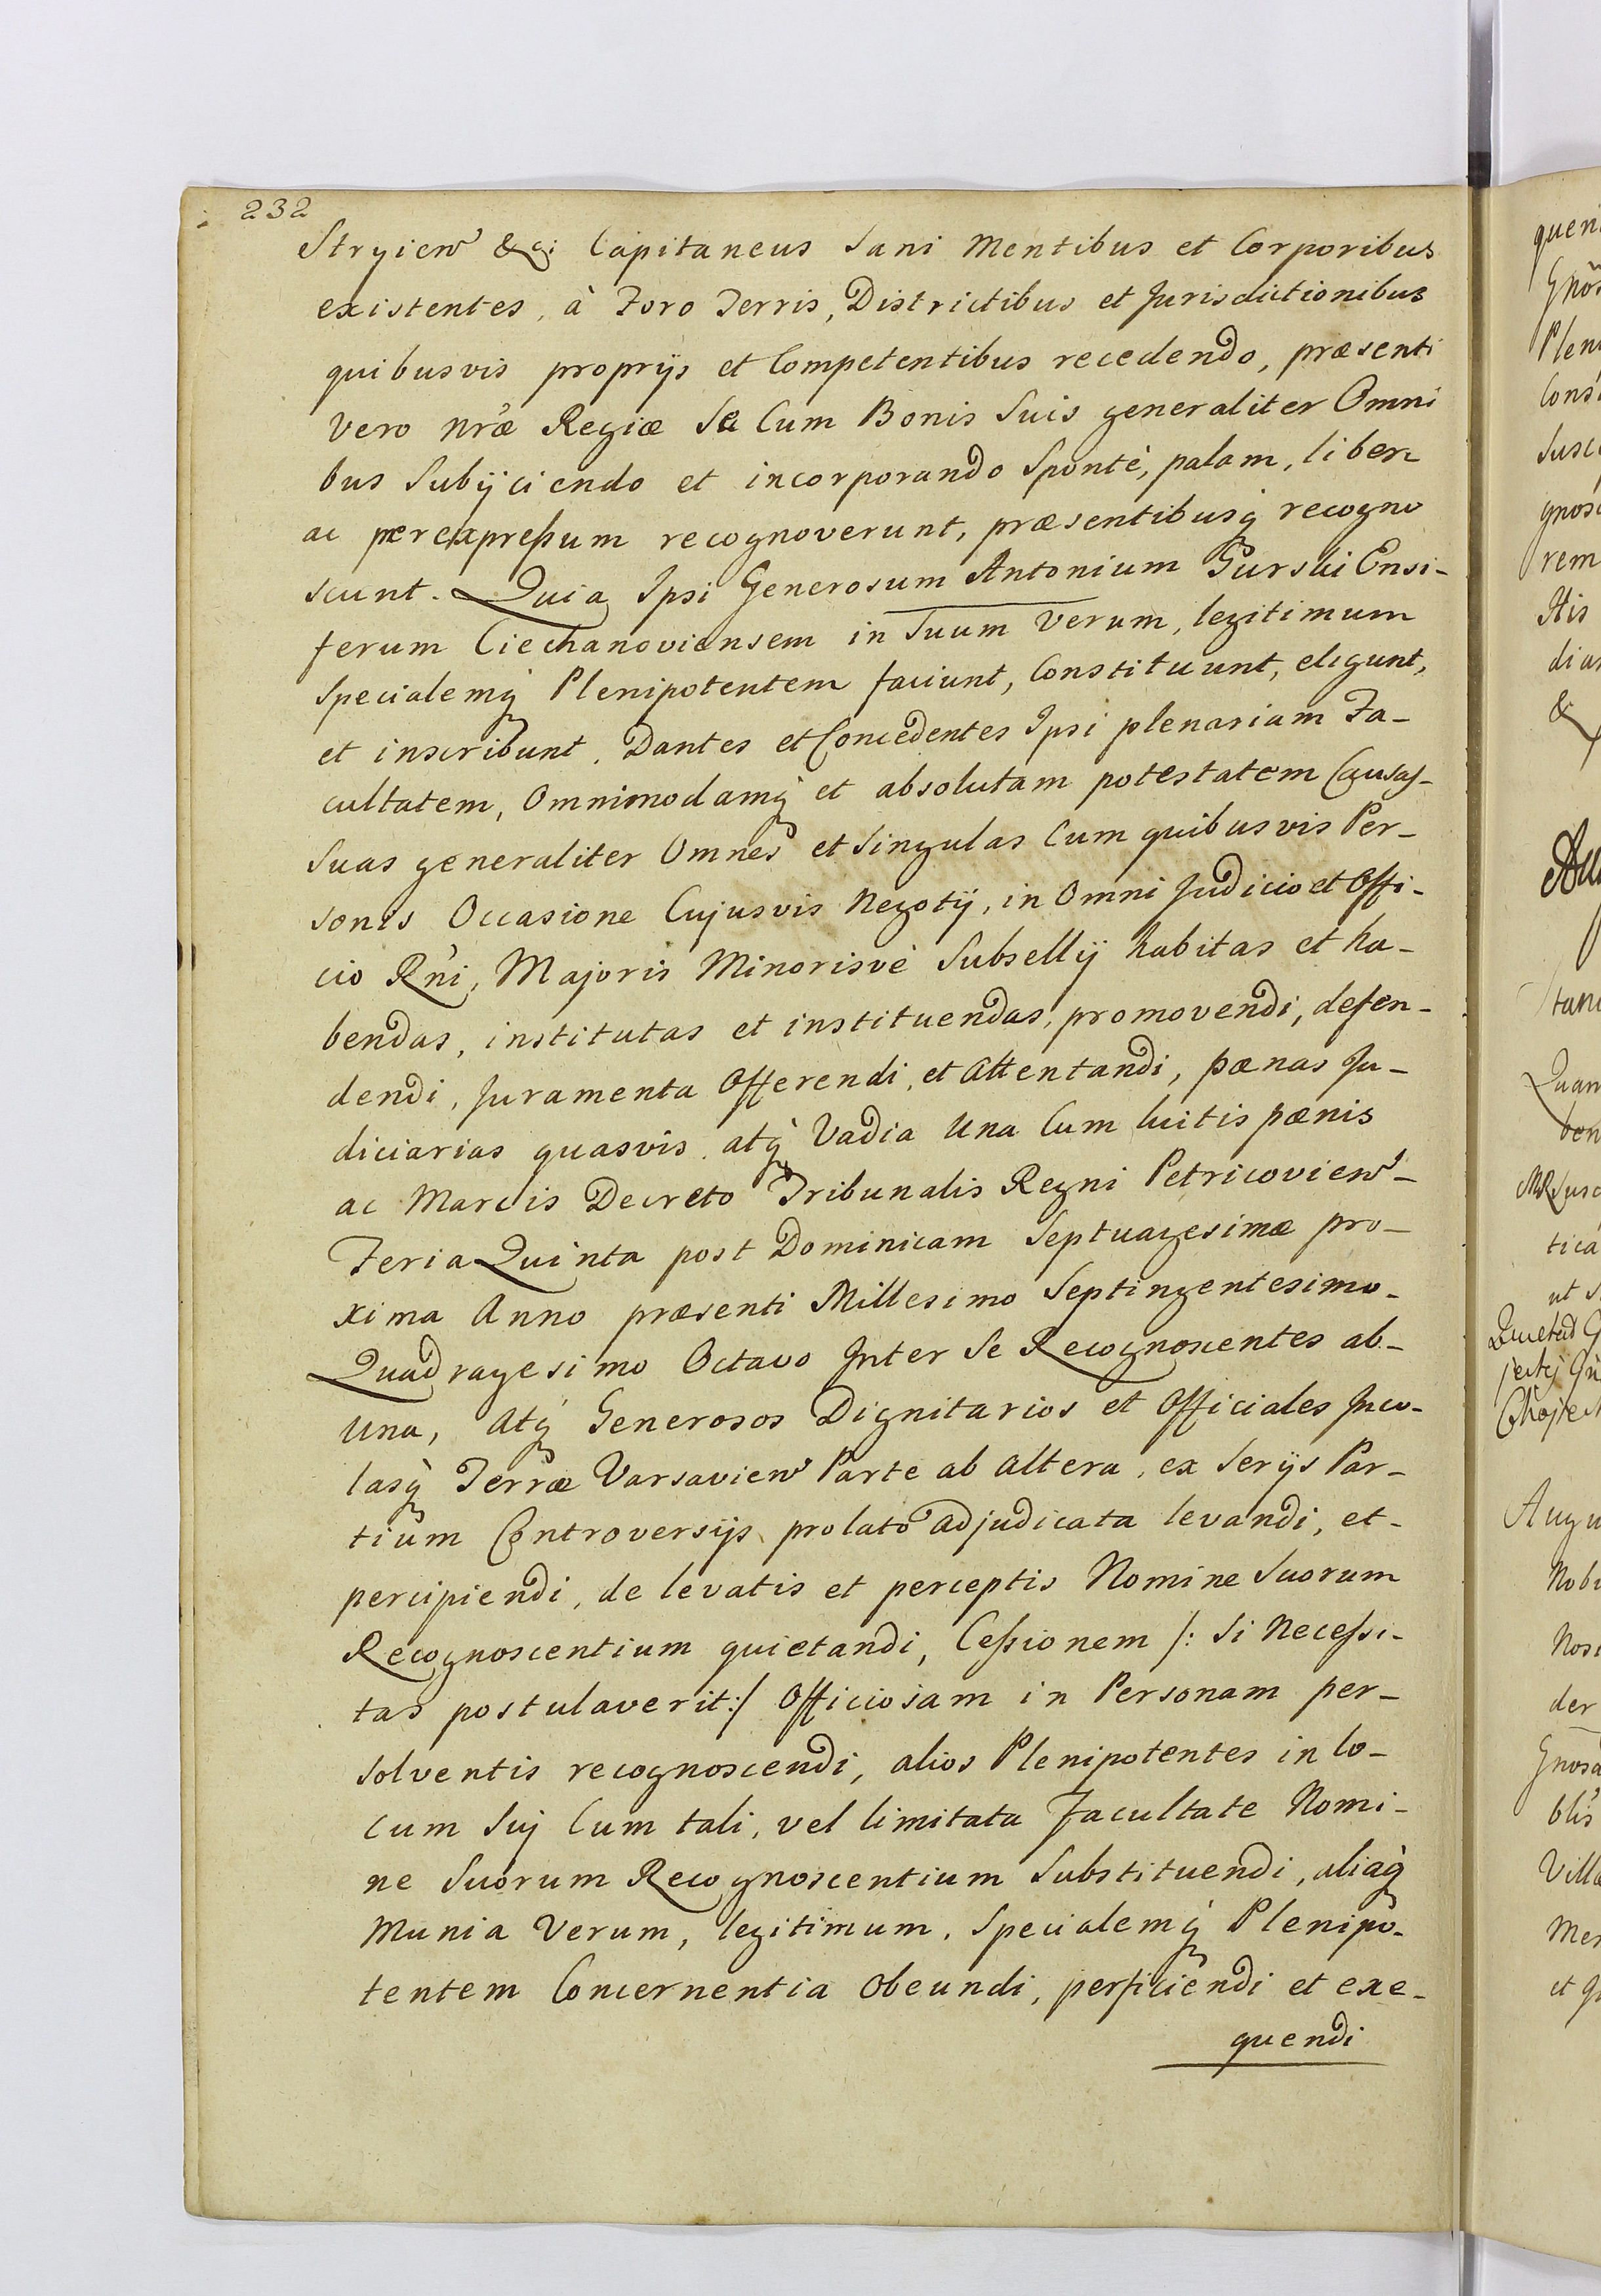 232
Stryien &c: Capitaneus Sani Mentibus et Corporibus
existentes, à Foro Terris, Districtibus et Jurisdictionibus
quibusvis proprijs et Competentibus recedendo, præsenti
vero nræ Regiæ Se Cum Bonis Suis generaliter Omni
bus Subijciendo et incorporando Spontè, palam, liberè
ac per expressum recognoverunt, præsentibusq recogno
scunt. Quia Ipsi Generosum Antonium Gurski Ensi-
ferum Ciechanoviensem in Suum Verum, legitimum
Specialemq Plenipotentem faciunt, Constituunt, eligunt,
et inscribunt. Dantes et Concedentes Ipsi plenariam Fa-
cultatem, Omnimodamq et absolutam potestatem Causas-
Suas generaliter Omnes et Singulas Cum quibusvis Per-
sonis Occasione Cujusvis Negotij, in Omni Judicio et Offi-
cio Rni, Majoris Minorisvè Subsellij habitas et ha-
bendas, institutas et instituendas, promovendi, defen-
dendi, Juramenta Offerendi, et Attentandi, pænas Ju-
diciarias quasvis, atq Vadia Una Cum luitis pænis
ac Marcis Decreto Tribunalis Regni Petricovien-
Feria Quinta post Dominicam Septuagesimæ pro-
xima Anno præsenti Millesimo Septingentesimo-
Quadragesimo Octavo Inter Se Recognoscentes ab-
una, Atq Generosos Dignitarios et Officiales Inco-
lasq Terræ Varsavien Parte ab Altera, ex Serijs Par-
tium Controversijs prolato adjudicata levandi, et-
percipiendi, de levatis et perceptis Nomine Suorum
Recognoscentium quietandi, Cessionem /: Si Necessi-
tas postulaverit:/ Officiosam in Personam per-
solventis recognoscendi, alios Plenipotentes in lo-
cum Suj Cum tali, vel limitata Facultate Nomi-
ne Suorum Recognoscentium Substituendi, aliaq
Munia Verum, legitimum, Specialemq Plenipo-
tentem Concernentia Obeundi, perficiendi et exe-
quendi